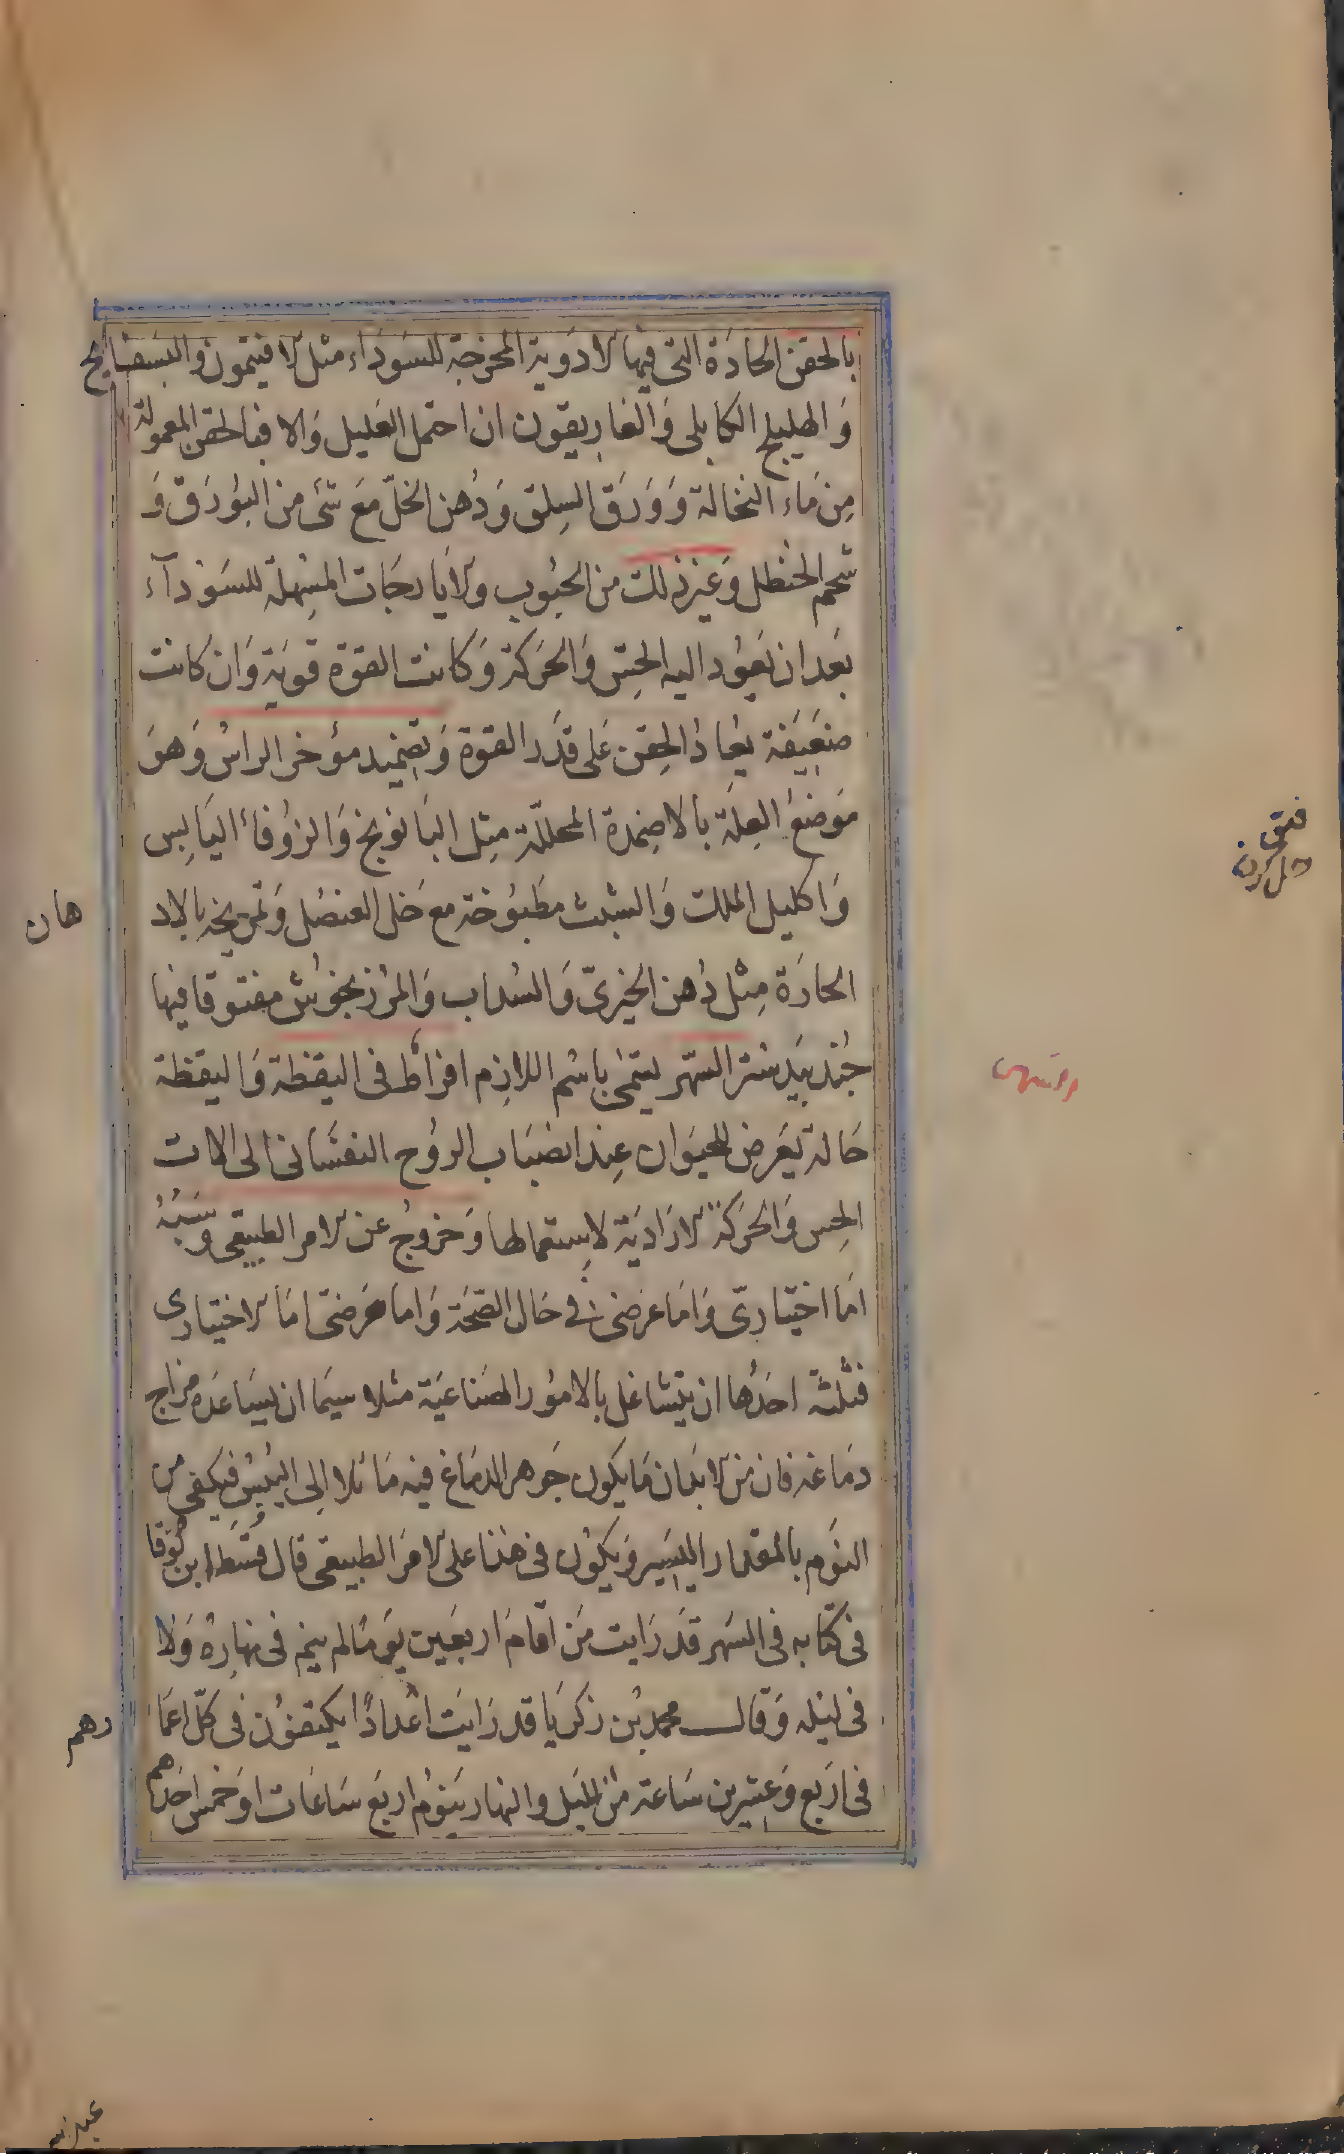 بالحقن الحادة التى فيها الادوية المخرجة للسوداء مثل الافيتمون والبسفايج
والهليلج الكابلى والغاريقون ان احتمل العليل والا فبالحقن المعمولة
من ماء النخالة وورق السلق ودهن الخلّ مع شئ من البورق و
شحم الحنظل وغير ذلك من الحبوب والايارجات المسهلة للسودآء
بعد ان يعود اليه الحس والحركة وكانت القوة قوية وان كانت
ضعيفة يعاد الحقن على قدر القوة وتضميد مؤخر الراس وهو
موضع العلة بالاضمدة المحللة مثل البابونج والزوفاء اليابس
واكليل الملك والشبث مطبوخة مع خل العنصل وتمريخه بالاد
هان
الحارة مثل دهن الخيرىّ والسداب والمرزنجوش مفتوقا فيها
جندبيدستر السهر يسمى باسم اللازم افراط فى اليقظة واليقظة
حالة يعرض للحيوان عند انصباب الروح النفسانى الى الات
الحس والحركة الارادية لاستعمالها وخروج عن الامر الطبيعى وسببه
اما اختيارىّ واما عرضى فى حال الصحة واما مرضىّ اما الاختيارى
فثلثة احدها ان يتشاغل بالامور الصناعية مثلا سيما ان يساعده مزاج
دماغه فان من الابدان ما يكون جوهر الدماغ فيه مائلا الى اليبس فيكفى من
النوم بالمقدار اليسير ويكون فى هذا على الامر الطبيعى قال قسطا ابن لوقا
فى كتابه فى السهر قد رايت من اقام اربعين يوما لم ينم فى نهاره ولا
فى ليله وقال محمد بن زكريا قد رايت اعدادًا يكتفون فى كل اعما
رهم
فى اربع وعشرين ساعة من الليل والنهار بنوم اربع ساعات او خمس احدهم
فتق